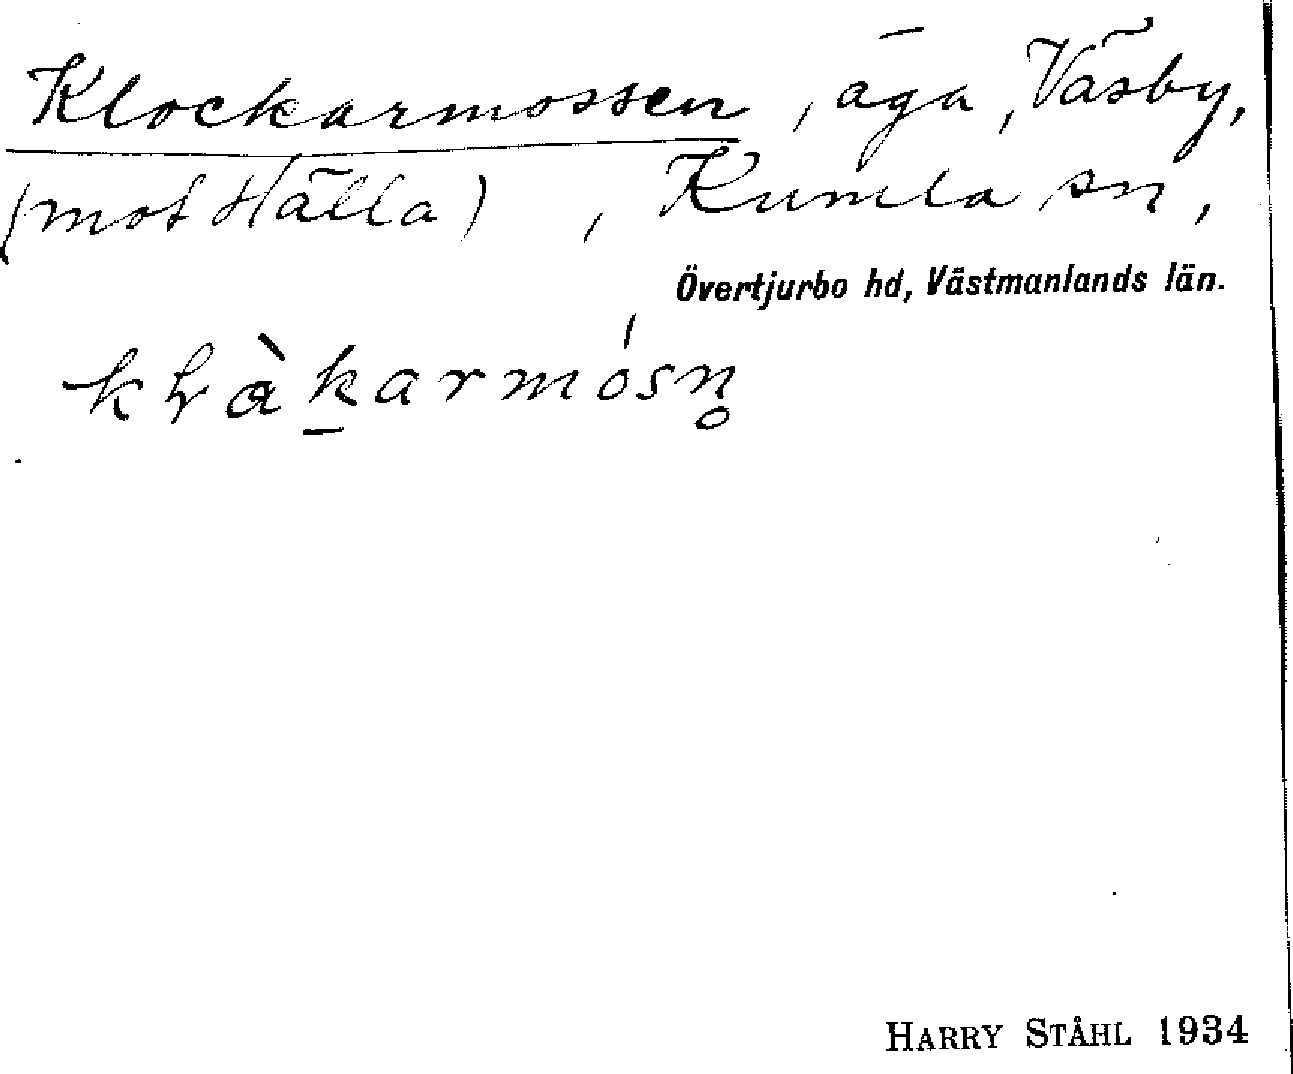 Klockarmossen, äga, Väsby,
(mot Hälla), Kumla sn,
Övertjurbo hd, Västmanlands län.
kɽàk̠armósn̥
HARRY STÅHL 1934